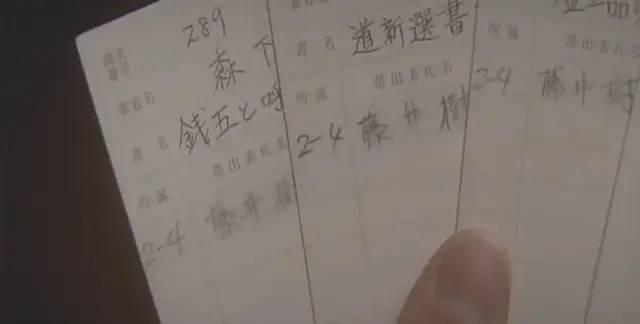 請求番号 289
著者名 森下
書名 銭五と呼
所属 帯出者氏名
2-4 藤井樹
書名 道新選書
所属 帯出者氏名
2-4 藤井樹
所属
2-4 藤井樹